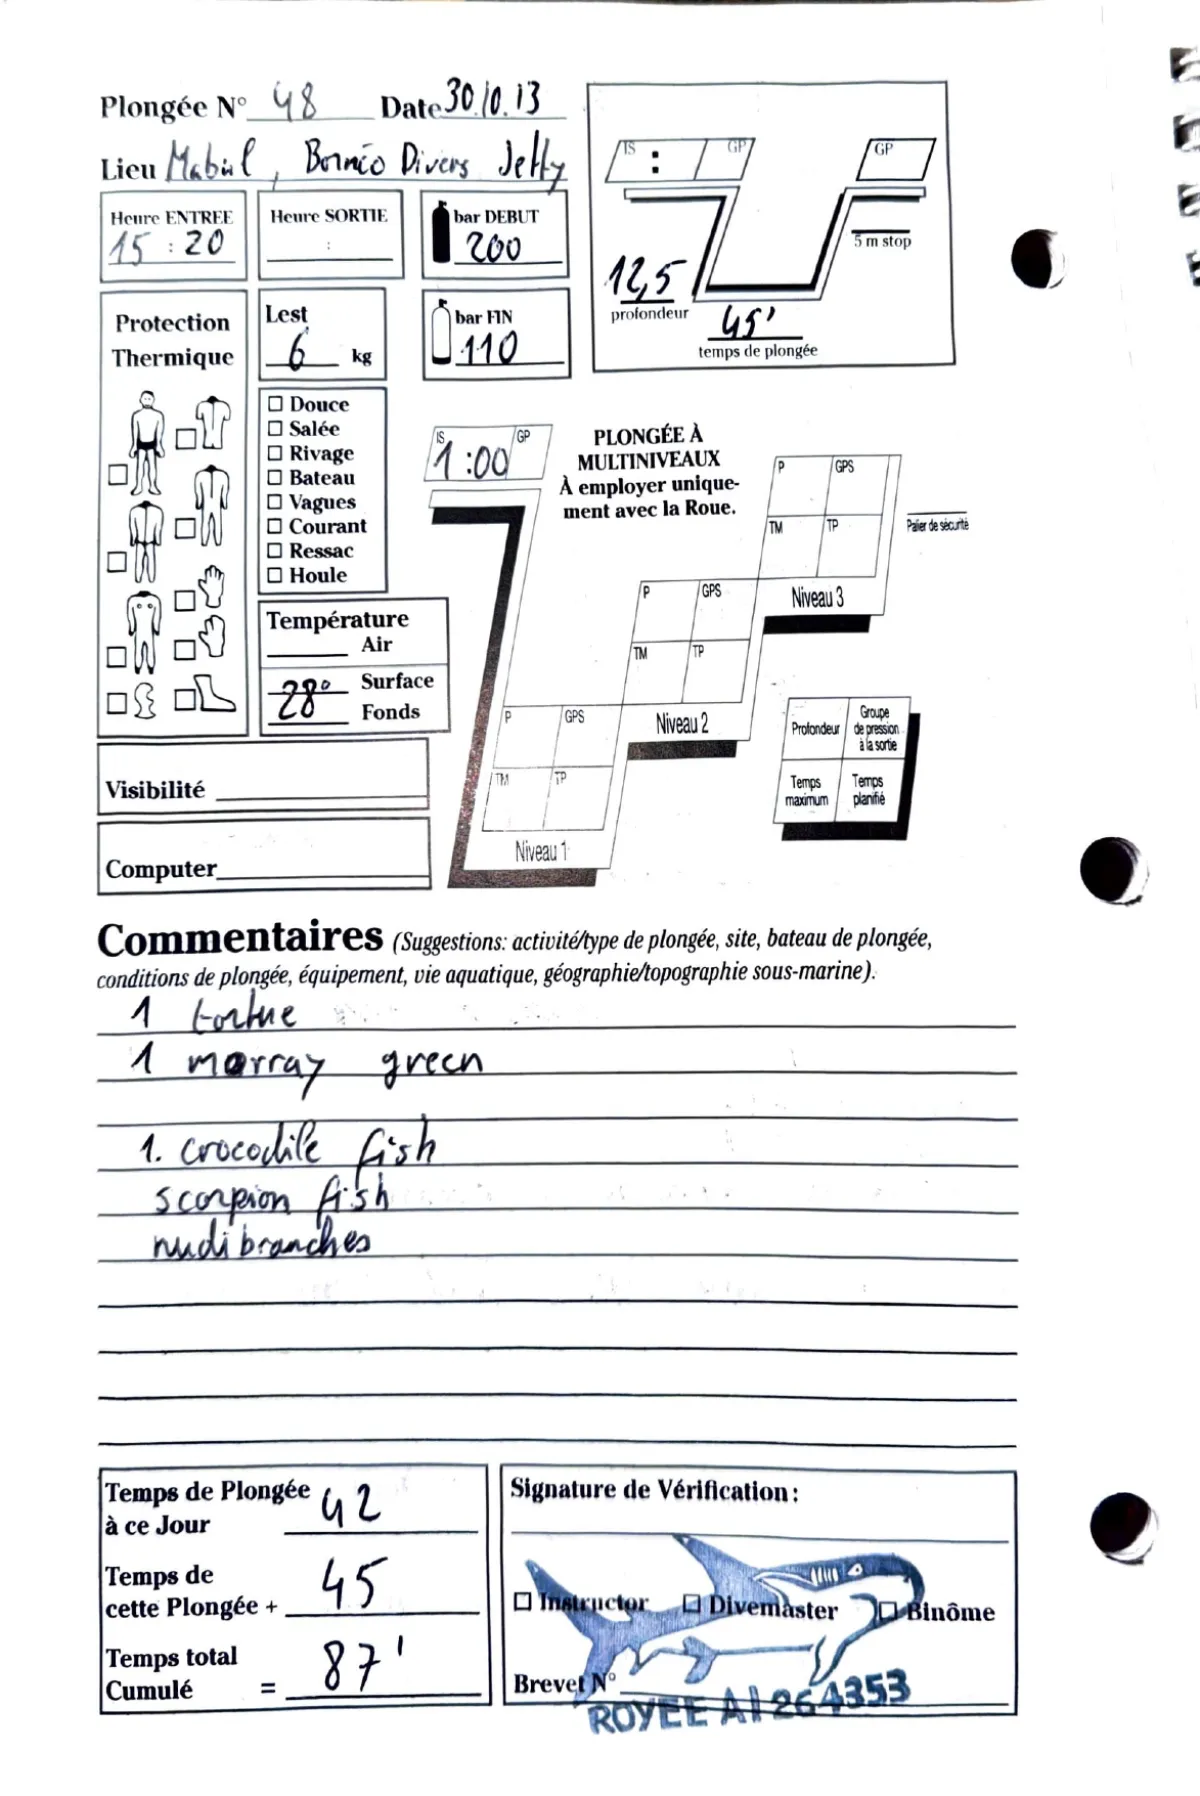 Plongée N° 48 Date 30.10.13
Lieu Mabul, Bornéo Divers Jetty
Heure ENTREE
15 : 20
Heure SORTIE
:
bar DEBUT
200
IS : GP
GP
5 m stop
12,5
profondeur
45'
temps de plongée
Protection
Thermique
Lest
6 kg
bar FIN
110
Douce
Salée
Rivage
Bateau
Vagues
Courant
Ressac
Houle
IS GP
1:00
PLONGÉE À
MULTINIVEAUX
À employer unique-
ment avec la Roue.
P GPS
TM TP
Niveau 3
Palier de sécurité
P GPS
TM TP
Niveau 2
P GPS
TM TP
Niveau 1
Température
Air
28° Surface
Fonds
Profondeur
Groupe
de pression
à la sortie
Temps
maximum
Temps
planifié
Visibilité
Computer
Commentaires (Suggestions: activité/type de plongée, site, bateau de plongée,
conditions de plongée, équipement, vie aquatique, géographie/topographie sous-marine).
1 tortue
1 morray green
1. crocodile fish
scorpion fish
nudibranches
Temps de Plongée
à ce Jour 42
Temps de
cette Plongée + 45
Temps total
Cumulé = 87'
Signature de Vérification :
Instructor Divemaster Binôme
Brevet N°
ROYEE AI 264353